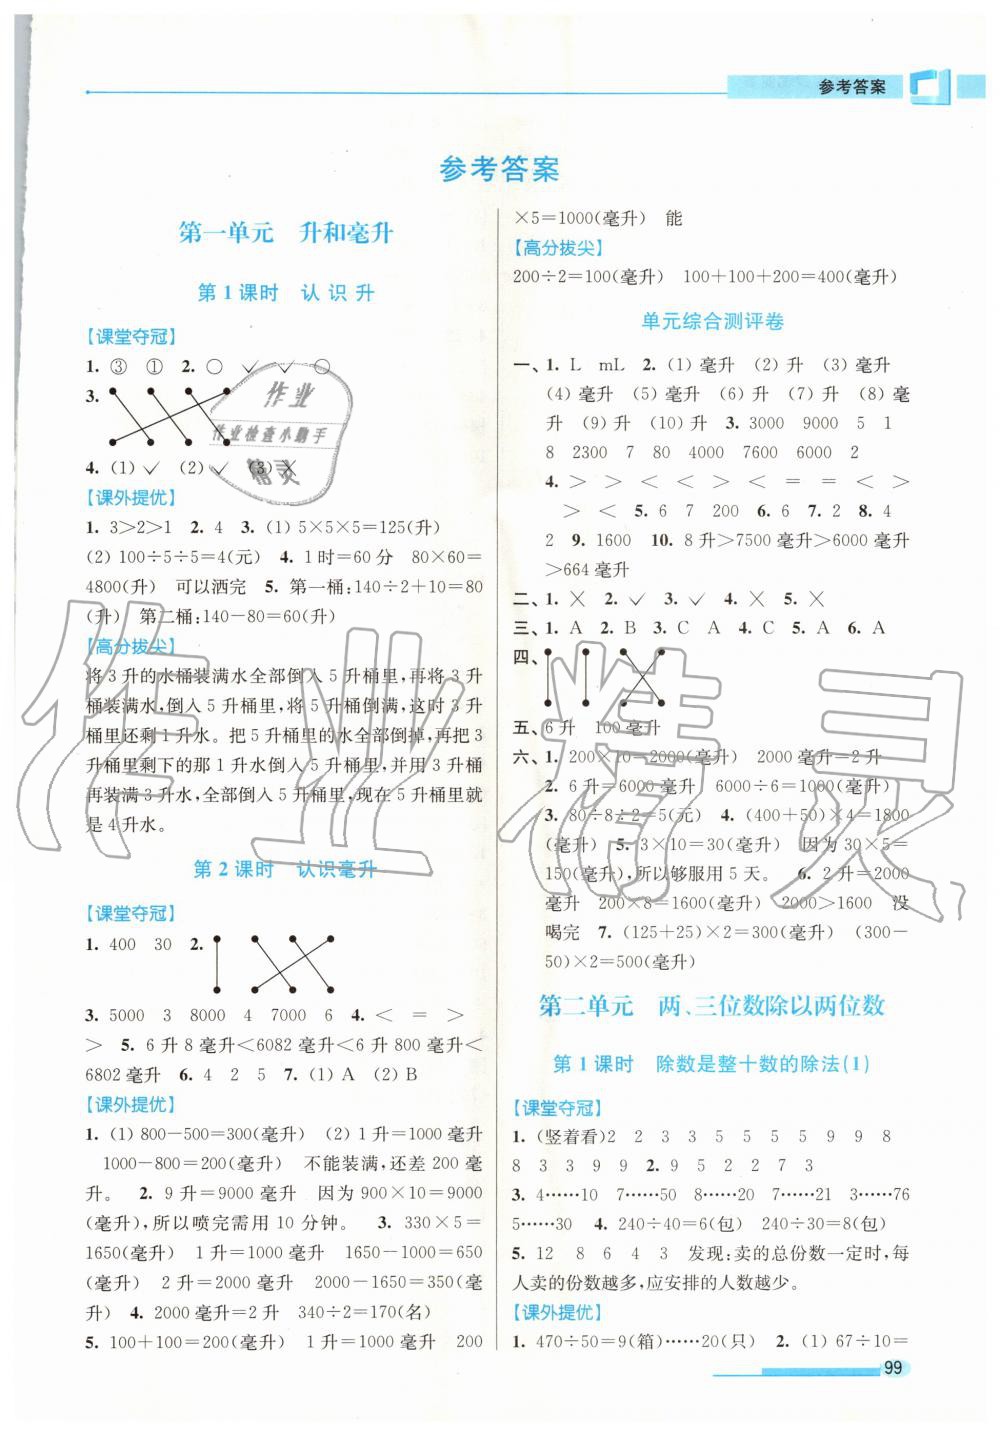 参考答案
参考答案
第一单元 升和毫升
第1课时 认识升
【课堂夺冠】
1. ③ ① 2. ○ ✓ ✓ ○
3.
4. (1)✓ (2)✓ (3)×
【课外提优】
1. 3>2>1 2. 4 3. (1) 5×5×5=125(升)
(2) 100÷5÷5=4(元) 4. 1时=60分 80×60=
4800(升) 可以洒完 5. 第一桶:140÷2+10=80
(升) 第二桶:140-80=60(升)
【高分拔尖】
将3升的水桶装满水全部倒入5升桶里,再将3升
桶装满水,倒入5升桶里,将5升桶倒满,这时3升
桶里还剩1升水。把5升桶里的水全部倒掉,再把3
升桶里剩下的那1升水倒入5升桶里,并用3升桶
再装满3升水,全部倒入5升桶里,现在5升桶里就
是4升水。
第2课时 认识毫升
【课堂夺冠】
1. 400 30 2.
3. 5000 3 8000 4 7000 6 4. < = >
> 5. 6升8毫升<6082毫升<6升800毫升<
6802毫升 6. 4 2 5 7. (1) A (2) B
【课外提优】
1. (1) 800-500=300(毫升) (2) 1升=1000毫升
1000-800=200(毫升) 不能装满,还差200毫
升。 2. 9升=9000毫升 因为900×10=9000
(毫升),所以喷完需用10分钟。 3. 330×5=
1650(毫升) 1升=1000毫升 1650-1000=650
(毫升) 2升=2000毫升 2000-1650=350(毫
升) 4. 2000毫升=2升 340÷2=170(名)
5. 100+100=200(毫升) 1升=1000毫升 200
×5=1000(毫升) 能
【高分拔尖】
200÷2=100(毫升) 100+100+200=400(毫升)
单元综合测评卷
一、1. L mL 2. (1) 毫升 (2) 升 (3) 毫升
(4) 毫升 (5) 毫升 (6) 升 (7) 升 (8) 毫
升 (9) 升 (10) 升 3. 3000 9000 5 1
8 2300 7 80 4000 7600 6000 2
4. > > < < > < = = < >
> > < 5. 6 7 200 6. 6 7. 2 8. 4
2 9. 1600 10. 8升>7500毫升>6000毫升
>664毫升
二、1. × 2. ✓ 3. ✓ 4. × 5. ×
三、1. A 2. B 3. C A 4. C 5. A 6. A
四、
五、6升 100毫升
六、1. 200×10=2000(毫升) 2000毫升=2升
2. 6升=6000毫升 6000÷6=1000(毫升)
3. 80÷8÷2=5(元) 4. (400+50)×4=1800
(毫升) 5. 3×10=30(毫升) 因为30×5=
150(毫升),所以够服用5天。 6. 2升=2000
毫升 200×8=1600(毫升) 2000>1600 没
喝完 7. (125+25)×2=300(毫升) (300-
50)×2=500(毫升)
第二单元 两、三位数除以两位数
第1课时 除数是整十数的除法(1)
【课堂夺冠】
1. (竖着看)2 2 3 3 5 5 5 5 5 9 9 8
8 3 3 9 9 2. 9 5 2 2 7 3
3. 4……10 7……50 8……20 7……21 3……76
5……30 4. 240÷40=6(包) 240÷30=8(包)
5. 12 8 6 4 3 发现:卖的总份数一定时,每
人卖的份数越多,应安排的人数越少。
【课外提优】
1. 470÷50=9(箱)……20(只) 2. (1) 67÷10=
99
作业
作业检查小助手
精灵
作业精灵